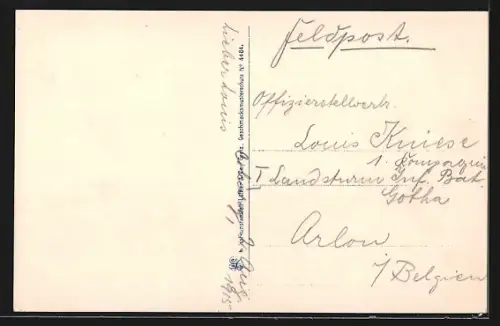 Feldpost.
Offizierstellvertr.
Louis Kniese
1. Kompagnie
I Landsturm Inf. Bat.
Gotha
Arlon
i/Belgien
Lieber Louis
Geschmacksmusterschutz Nr. 4404.
1915